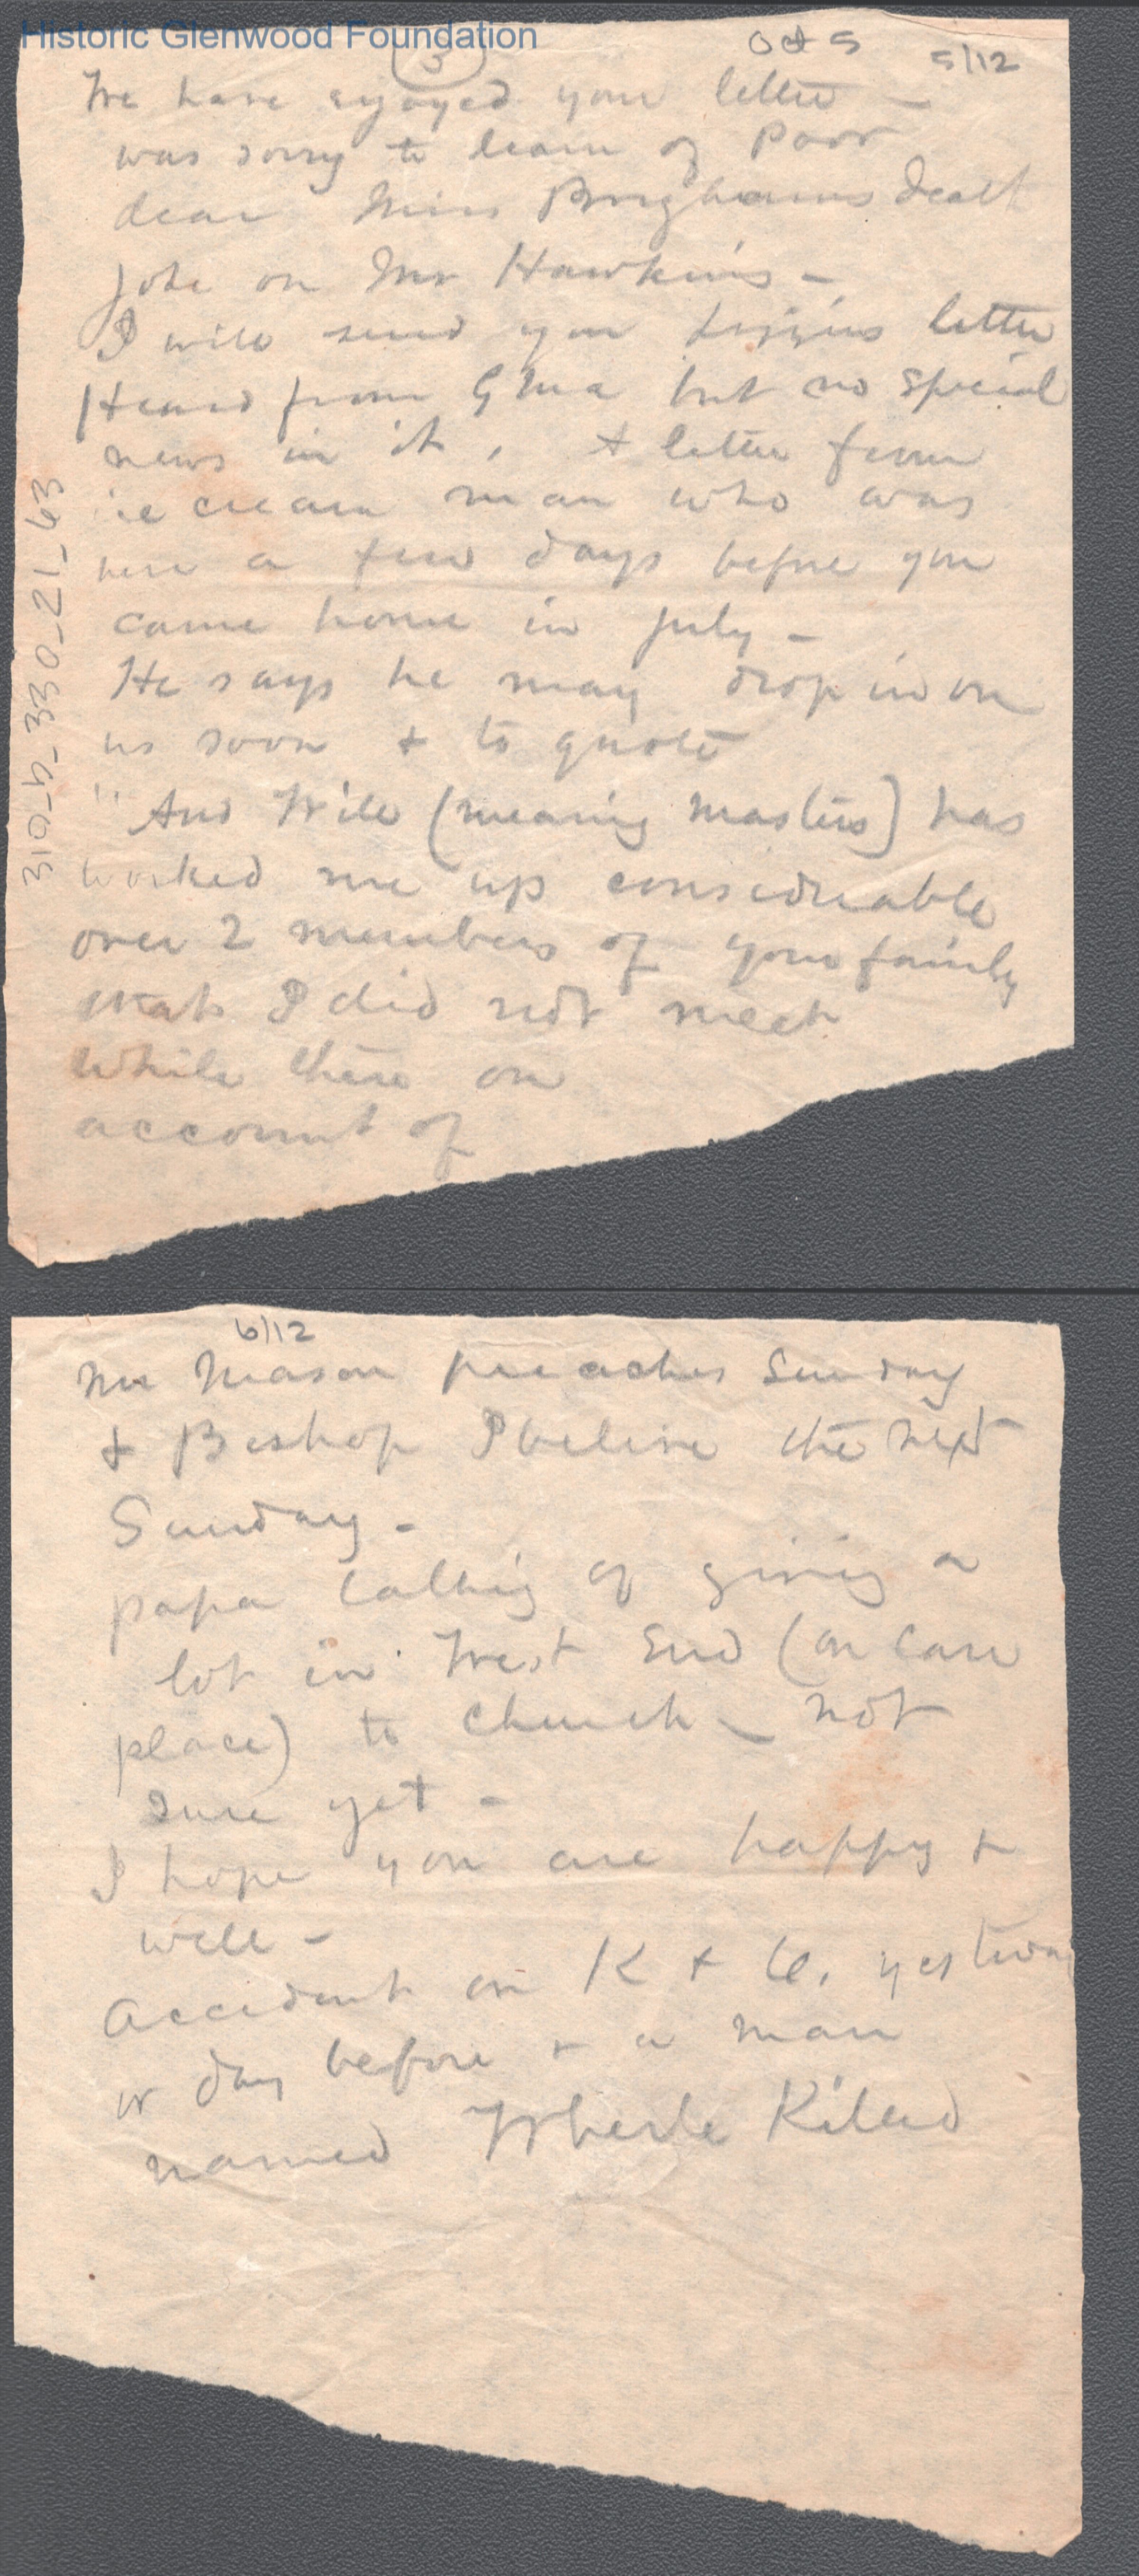 Historic Glenwood Foundation
Oct 5 5/12
3
We have enjoyed your letter –
was sorry to learn of Poor
dear Miss Brighams death
Joke on Mr Hawkins –
I will send you Lizzies letter
Heard from G Ma but no special
news in it, & letter from
ice cream man who was
here a few days before you
came home in July –
He says he may drop in on
us soon & to quote
"And Will (meaning Masters) has
worked me up considerable
over 2 members of your family
that I did not meet
while there on
account of
310_5_330_21_63
6/12
Mr Mason preaches Sunday
& Bishop the next
Sunday –
papa talking of giving a
lot in West End (on Carr
place) to church – not
sure yet –
I hope you are happy &
well –
Accident on K & yesterday
or day before & a man
named Wherle Killed